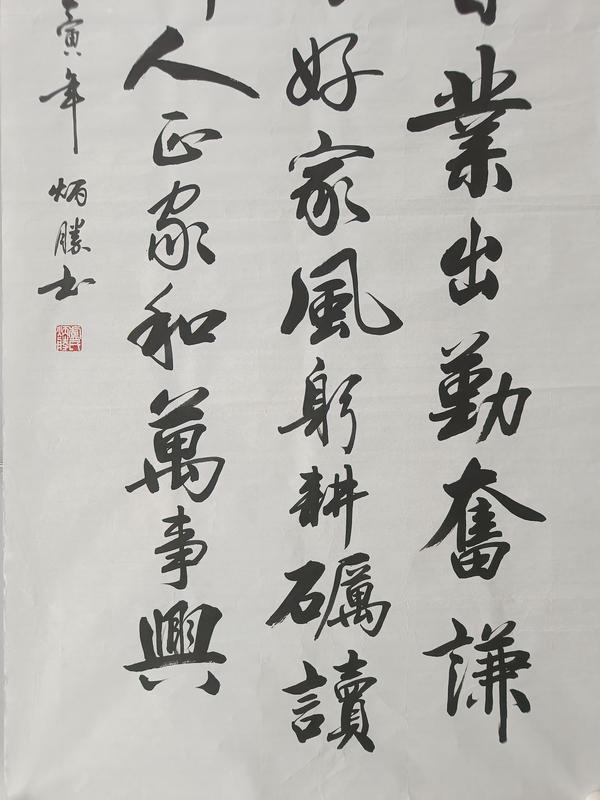 業出勤奮謙
好家風躬耕礪讀
人正家和萬事興
寅年
炳勝书